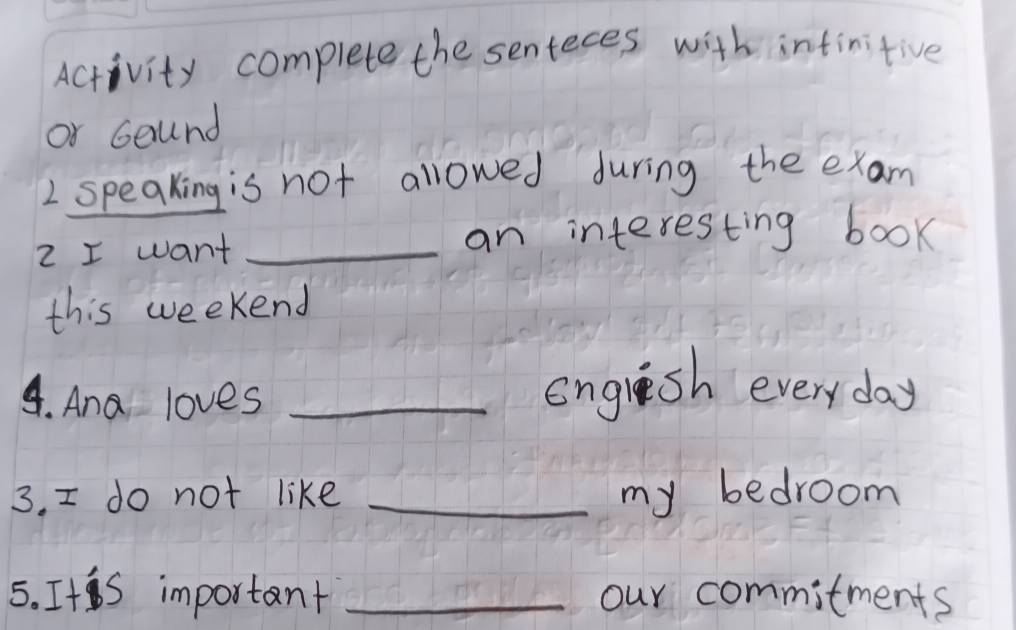 Activity complete the senteces with infinitive
or Gerund
1 speaking is not allowed during the exam
2 I want ________ an interesting book
this weekend
4. Ana loves ________ English every day
3. I do not like ________ my bedroom
5. It is important ________ our commitments